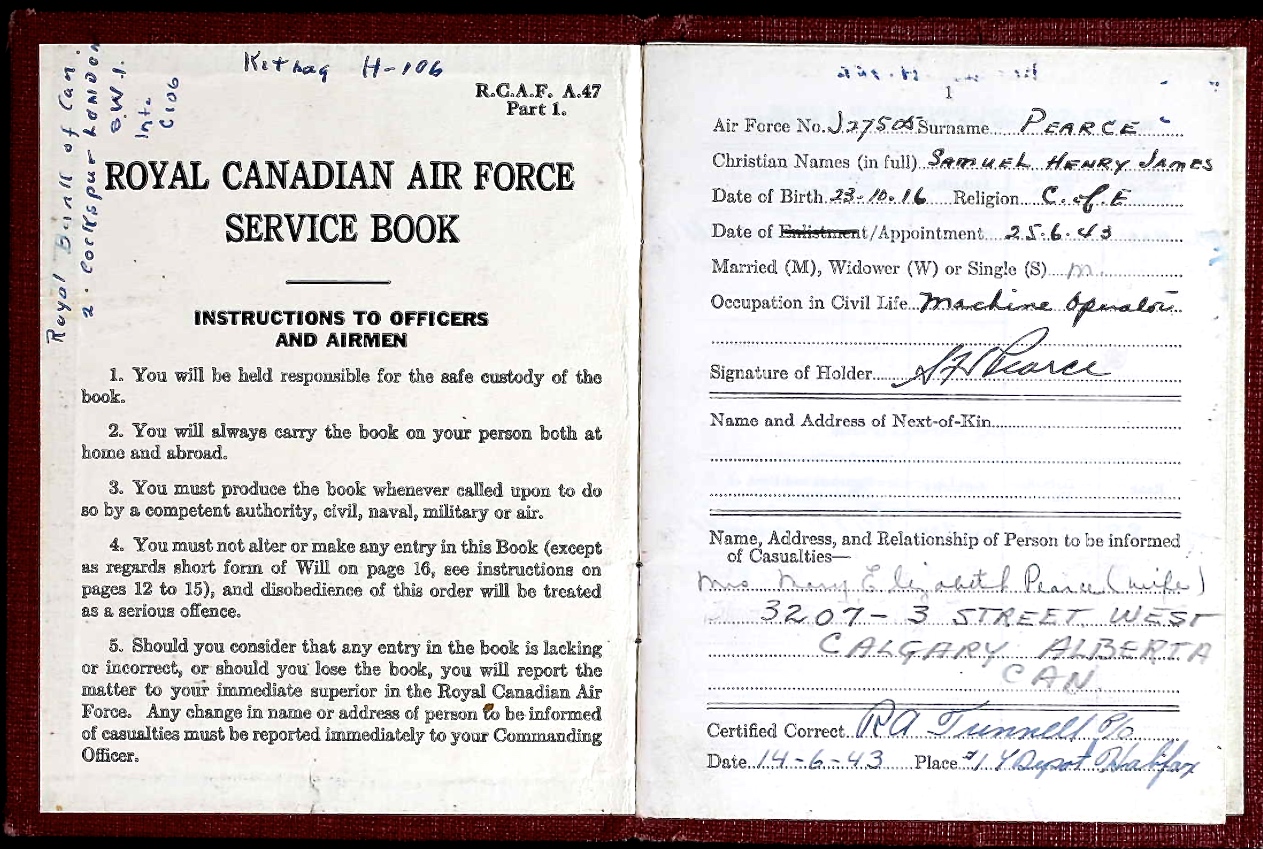 Kitbag H-106
Royal Bank of Can.
2. Cockspur London
S.W.1.
Int.
C106
R.C.A.F. A.47
Part 1.
ROYAL CANADIAN AIR FORCE
SERVICE BOOK
INSTRUCTIONS TO OFFICERS
AND AIRMEN
1. You will be held responsible for the safe custody of the
book.
2. You will always carry the book on your person both at
home and abroad.
3. You must produce the book whenever called upon to do
so by a competent authority, civil, naval, military or air.
4. You must not alter or make any entry in this Book (except
as regards short form of Will on page 16, see instructions on
pages 12 to 15), and disobedience of this order will be treated
as a serious offence.
5. Should you consider that any entry in the book is lacking
or incorrect, or should you lose the book, you will report the
matter to your immediate superior in the Royal Canadian Air
Force. Any change in name or address of person to be informed
of casualties must be reported immediately to your Commanding
Officer.
1
Air Force No. J27505 Surname PEARCE
Christian Names (in full) SAMUEL HENRY JAMES
Date of Birth 23.10.16 Religion C. of E
Date of Enlistment/Appointment 25.6.43
Married (M), Widower (W) or Single (S) m.
Occupation in Civil Life Machine Operator
Signature of Holder SHJ Pearce
Name and Address of Next-of-Kin
Name, Address, and Relationship of Person to be informed
of Casualties—
Mrs. Mary Elizabeth Pearce (wife)
3207-3 STREET WEST
CALGARY ALBERTA
CAN.
Certified Correct RA Tunnell P/O
Date 14-6-43 Place #1 Y Depot Halifax